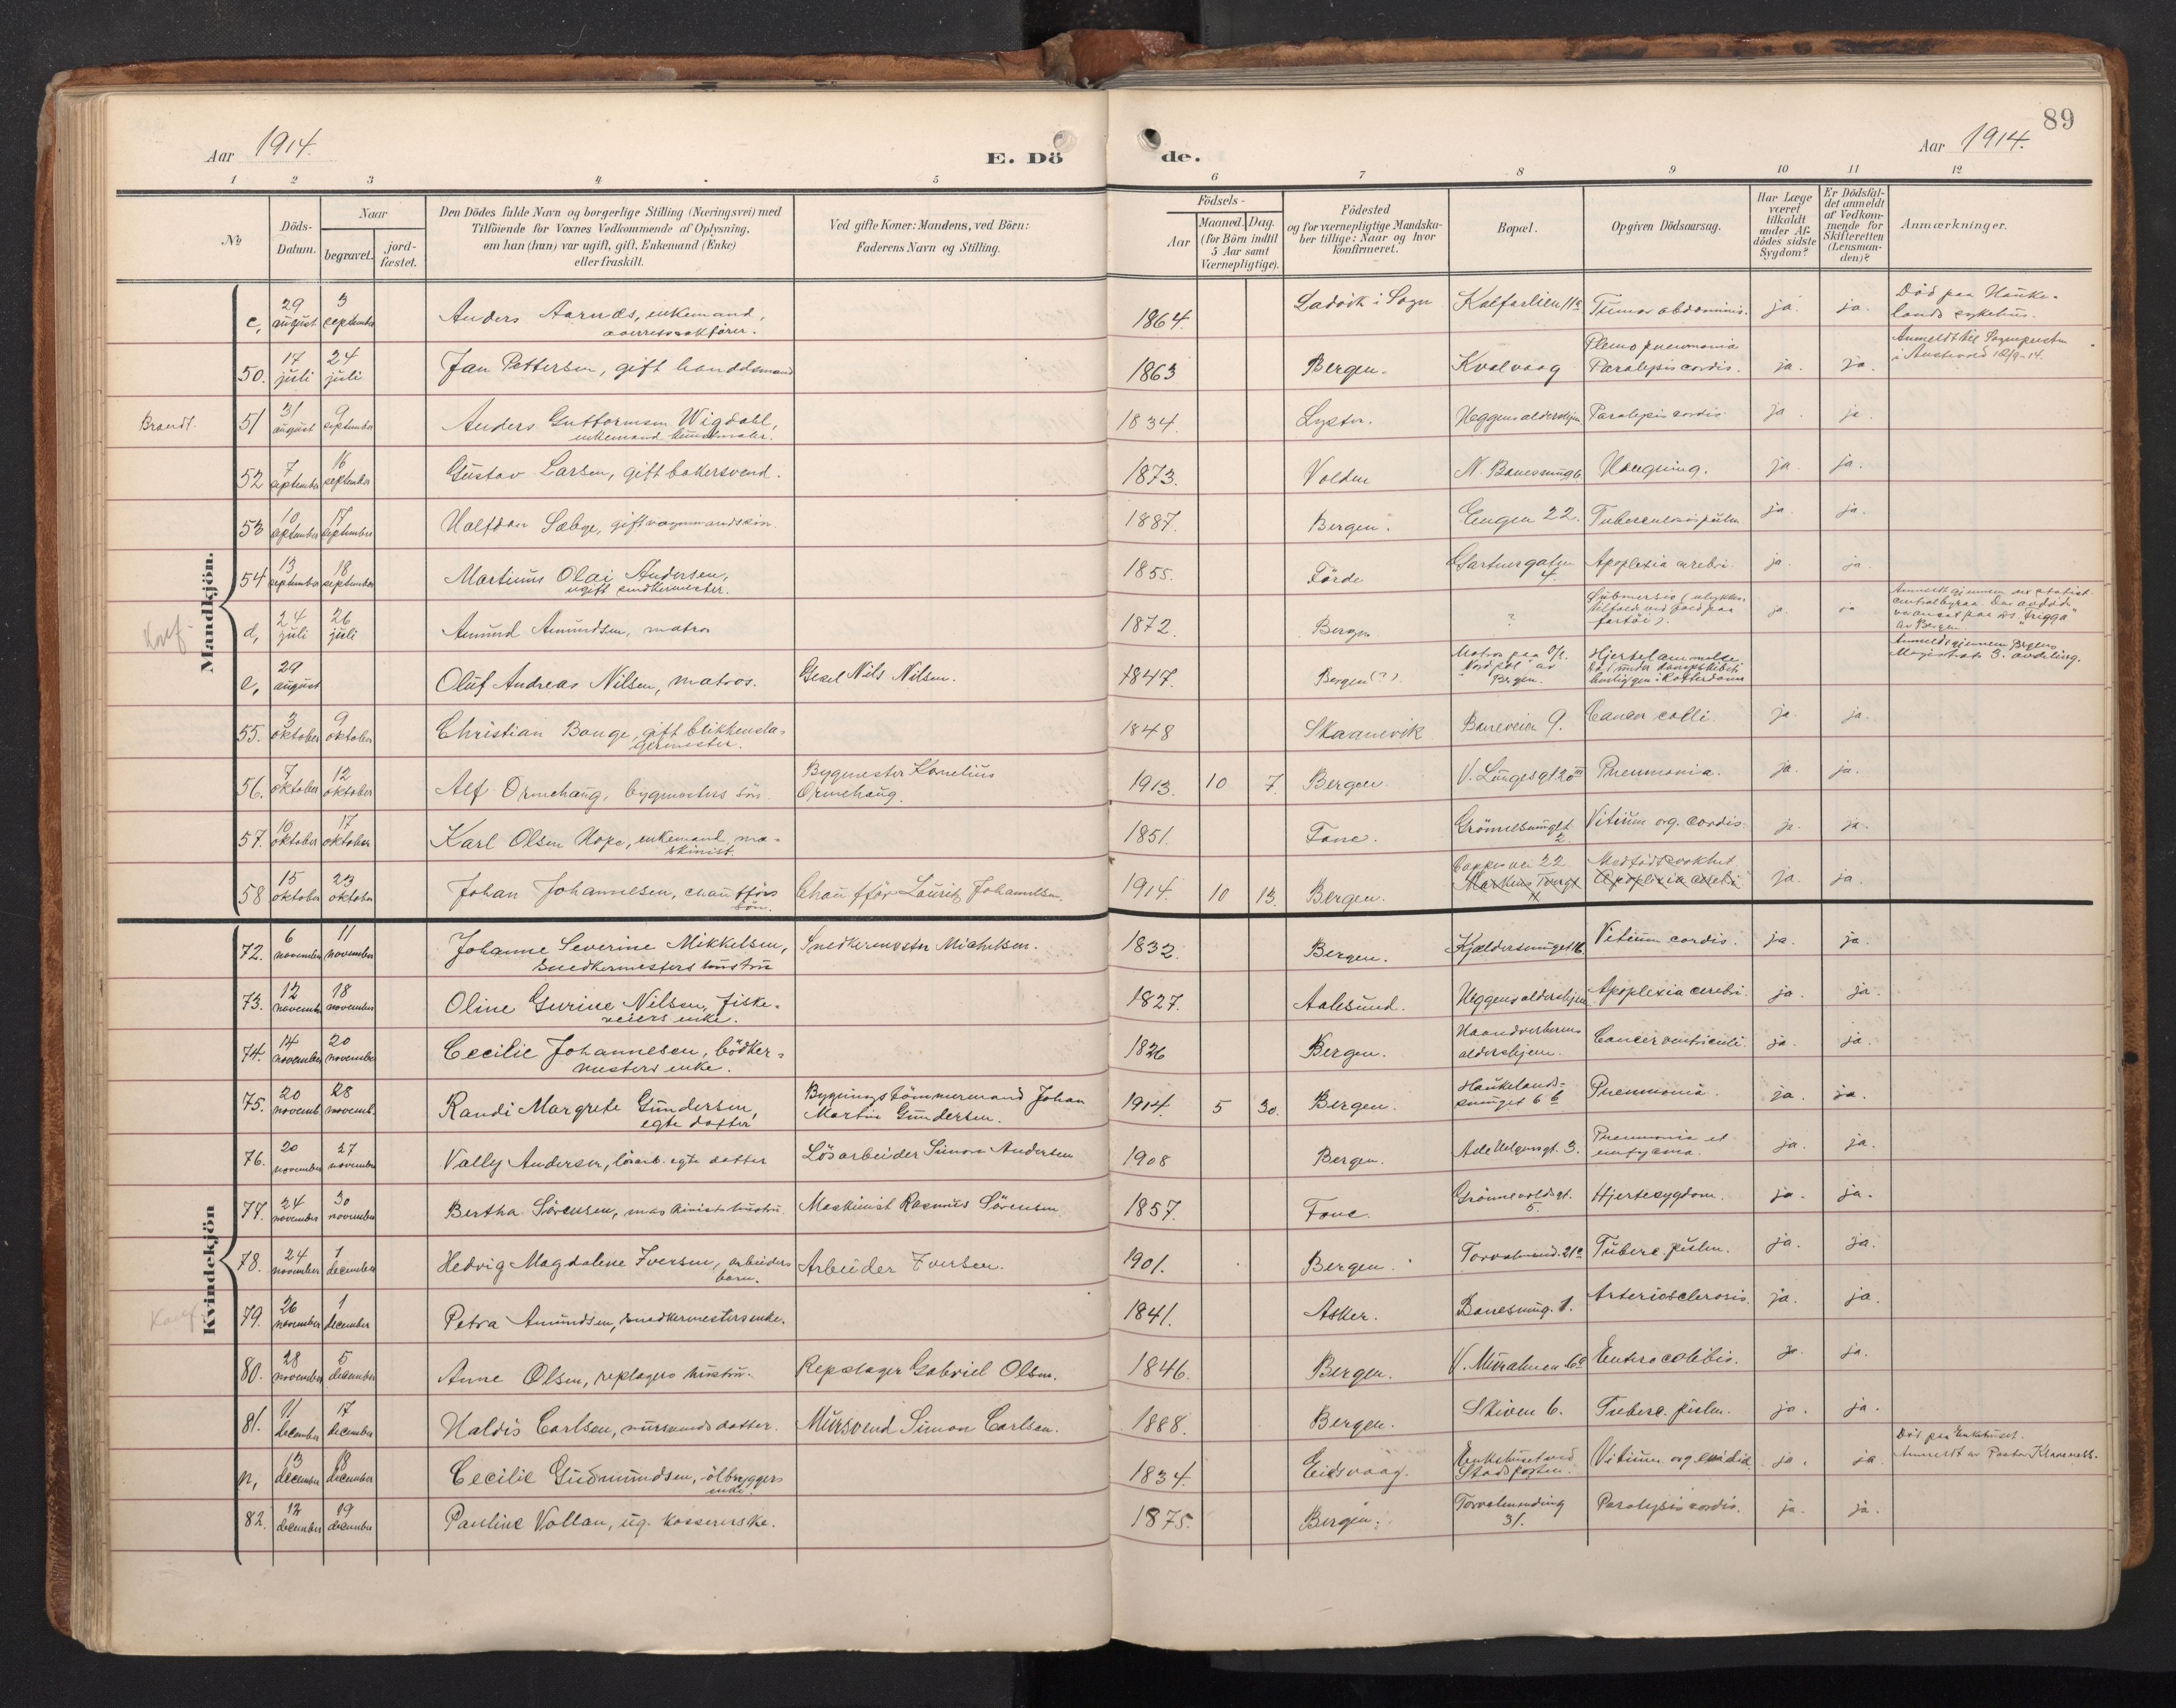 89
Aar 1914.
E. Dö
de.
Aar 1914.
1 2 3 4 5 6 7 8 9 10 11 12
No
Döds-
Datum.
Naar
begravet.
jord-
fæstet.
Den Dödes fulde Navn og borgerlige Stilling (Næringsvei) med
Tilföiende for Voxnes Vedkommende af Oplysning,
om han (hun) var ugift, gift, Enkemand (Enke)
eller fraskilt.
Ved gifte Koner: Mandens, ved Börn:
Faderens Navn og Stilling.
Födsels-
Aar
Maaned. Dag.
(for Börn indtil
5 Aar samt
Værnepligtige).
Födested
og for værnepligtige Mandska-
ber tillige: Naar og hvor
konfirmeret.
Bopæl.
Opgiven Dödsaarsag.
Har Læge
været
tilkaldt
under Af-
dödes sidste
Sygdom?
Er Dödsfal-
det anmeldt
af Vedkom-
mende for
Skifteretten
(Lensman-
den)?
Anmærkninger.
Mandkjön.
c, 29 august 3 september Anders Aarnæs, enkemand, 1864. Ladvik i Sogn Kalfarlien 11a Tumor abdominis. ja. ja. Död paa Hauke-
overretssakförer. lands sykehus.
50. 17 juli 24 juli Jan Pettersen, gift handelsmand 1863 Bergen. Kvalvaag Pleuropneumonia ja. ja. Anmeldt til Sognepresten
Paralysis cordis. i Austevold 18/9-14.
Brandt. 51 31 august 9 september Anders Guttormsen Wigdahl, 1834. Lyster. Heggens aldershjem Paralysis cordis ja. ja.
enkemand kunstmaler.
52 7 september 16 september Gustav Larsen, gift bakersvend. 1873. Volden Hængning. ja. ja.
53 10 september 17 september Halfdan Sæbye, gift 1887. Bergen. Engen 22. Tuberculosis pulm. ja. ja.
54 13 september 18 september Martinus Olai Andersen, 1855. Förde Gartnergaten 4. Apoplexia cerebri. ja. ja.
ugift snedkermester.
Konf. d, 24 juli 26 juli Amund Amundsen, matros 1872. Bergen ? Submersio (ulykkes- ja. ja Anmeldt gjennem det statist.
tilfæld ved fald paa centralbyraa. Den avdöde
fartöi). var ansat paa D/S "Frigga"
av Bergen
e, 29 august Oluf Andreas Nilsen, matros. Nils Nilsen. 1847. Bergen (?). Matros paa Hjertelammelse Anmeldt gjennem Bergens
"Nordpol" av död under Magistrats 3. avdeling.
Bergen. i Rotterdam
55. 3 oktober 9 oktober Christian Bauge, gift blikkensla- 1848 Skaanevik Baneveien 9. Cancer colli ja. ja.
germester.
56. 7 oktober 12 oktober Alf Ormehaug, bygmesters sön. Bygmester Kornelius 1913. 10 7. Bergen V. Lungegt 20 III Pneumonia. ja. ja.
Ormehaug.
57. 10 oktober 17 oktober Karl Olsen Hope, enkemand, ma- 1851. Fane. 2. Vitium org. cordis. ja. ja.
skinist.
58 15 oktober 23 oktober Johan Johannesen, chaufförs Chaufför Lauritz Johannesen. 1914. 10 13. Bergen. 22 Medfödt svakhet. ja. ja.
sön. Apoplexia cerebri
Kvindekjön
72. 6 november 11 november Johanne Severine Mikkelsen, Snedkermester Michelsen. 1832. Bergen. Kjeldersmuget 16. Vitium cordis. ja. ja.
snedkermesters hustru
73. 12 november 18 november Oline Gurine Nilsen, fiske- 1827. Aalesund. Heggens aldershjem Apoplexia cerebri. ja. ja.
veiers enke.
74. 14 november 20 november Cecilie Johannesen, bödker- 1826 Bergen. Haandverkernes Cancer ventriculi. ja. ja.
mesters enke. aldershjem.
75. 20 novemb. 28 novemb. Randi Margrete Gundersen, Bygningstömmermand Johan 1914. 5 30. Bergen. Haukelands- Pneumonia. ja. ja.
egte datter Martin Gundersen. smuget 6 b
76. 20 november 27 november Vally Andersen, lösarb. egte datter Lösarbeider Simon Andersen 1908 Bergen. Ade Helgensgt. 3. Pneumonia et ja. ja.
empyema.
77. 24 november 30 november Bertha Sörensen, maskinists hustru. Maskinist Rasmus Sörensen 1857. Fane. Grönnevoldsgt. Hjertesygdom. ja. ja.
5.
78. 24 november 1 december Hedvig Magdalene Iversen, arbeiders Arbeider Iversen. 1901. Bergen. Torvalmend. 21a Tuberc. pulm. ja. ja.
barn.
79. 26 november 1 december Petra Amundsen, snedkermesters enke. 1841. Asker. Banesmug. 1. Arteriosclerosis. ja. ja.
80. 28 november 5 december Anne Olsen, repslagers hustru. Repslager Gabriel Olsen. 1846. Bergen. V. Muralmen. Enterocolitis. ja. ja.
81. 11 december 17 december Haldis Carlsen, mursvends datter. Mursvend Simon Carlsen. 1888. Bergen. Skiven 6. Tuberc. pulm. ja. ja.
n, 13 december 18 december Cecilie Gudmundsen, ölbryggers 1834. Eidsvaag. Enkehuset ved Vitium org. cordis. ja. ja. Död paa Enkehuset.
enke. Stadsporten. Anmeldt av Pastor
82. 12 december 19 december Pauline Vollan, ug. kassererske. 1875. Bergen. Torvalmending Paralysis cordis. ja. ja.
31.